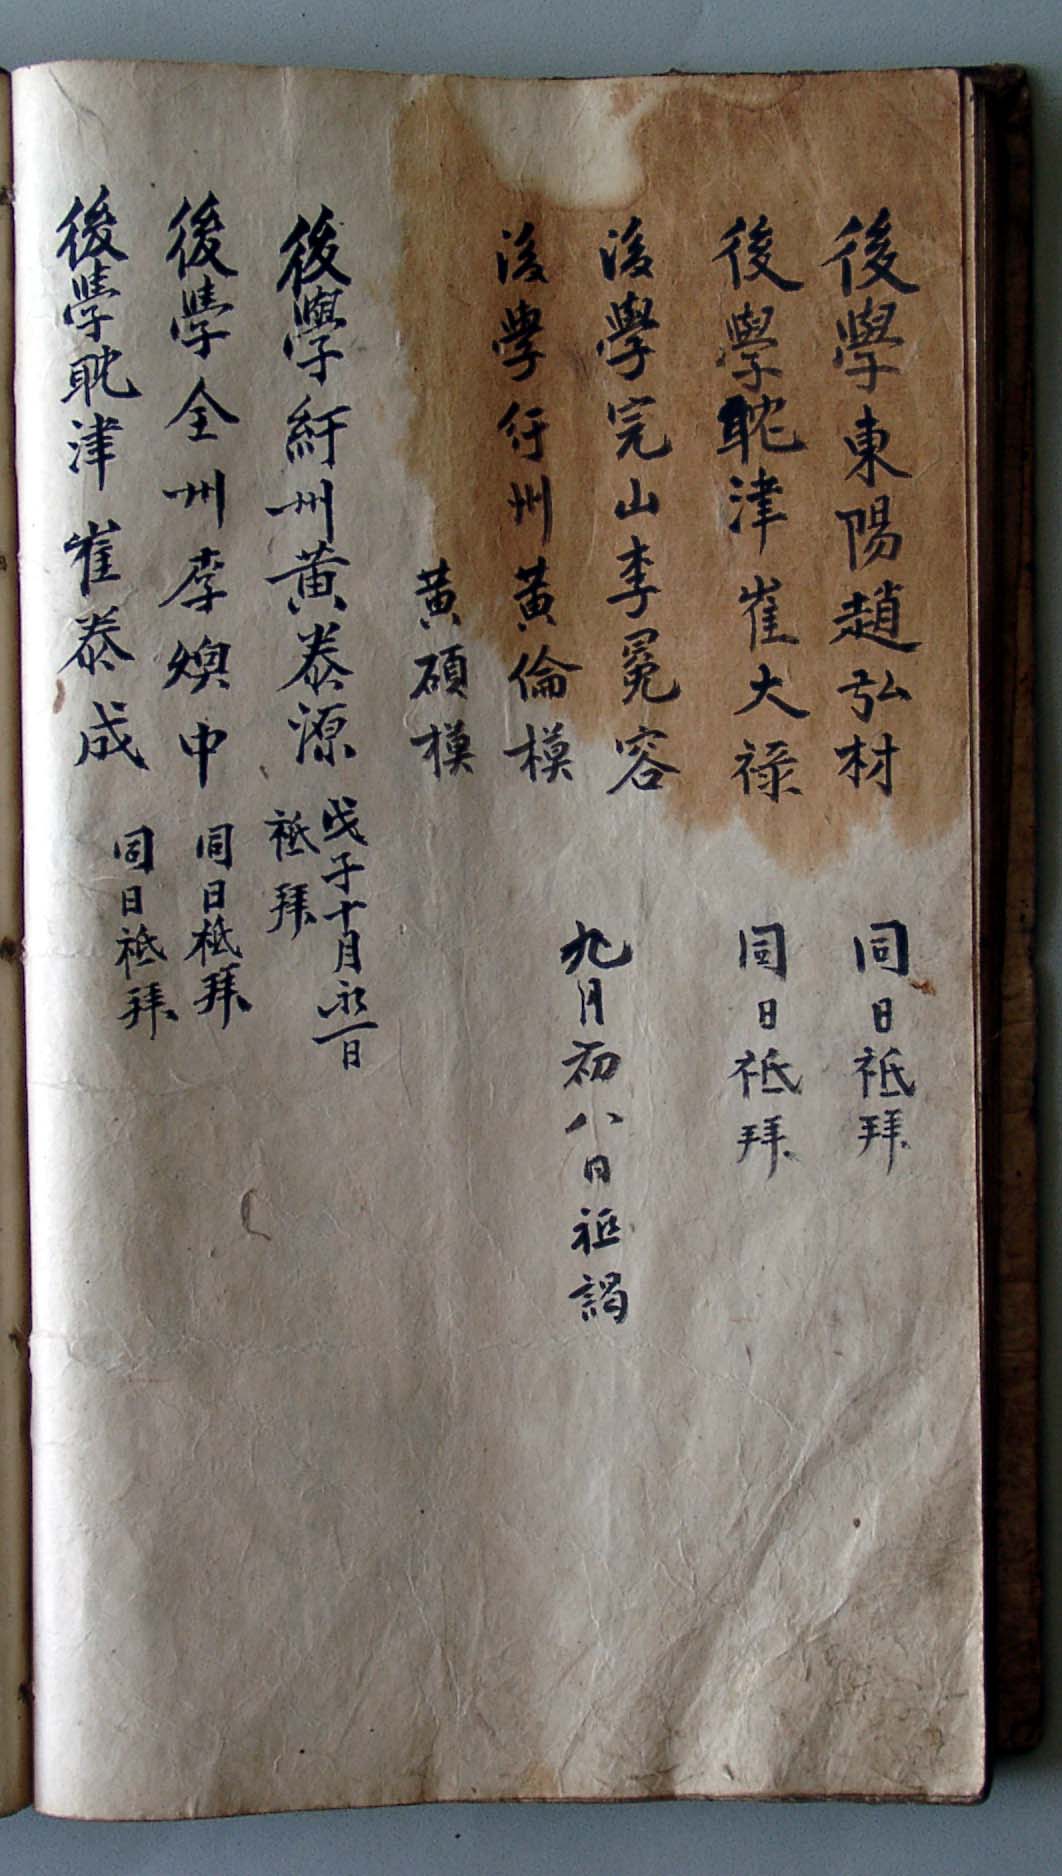 後學東陽趙弘材 同日祗拜
後學耽津崔大祿 同日祗拜
後學完山李冕容
九月初八日祗謁
後學紆州黃倫模
黃碩模
後學紆州黃泰源 戊子十月初一日
祗拜
後學全州李煥中 同日祗拜
後學耽津崔泰成 同日祗拜